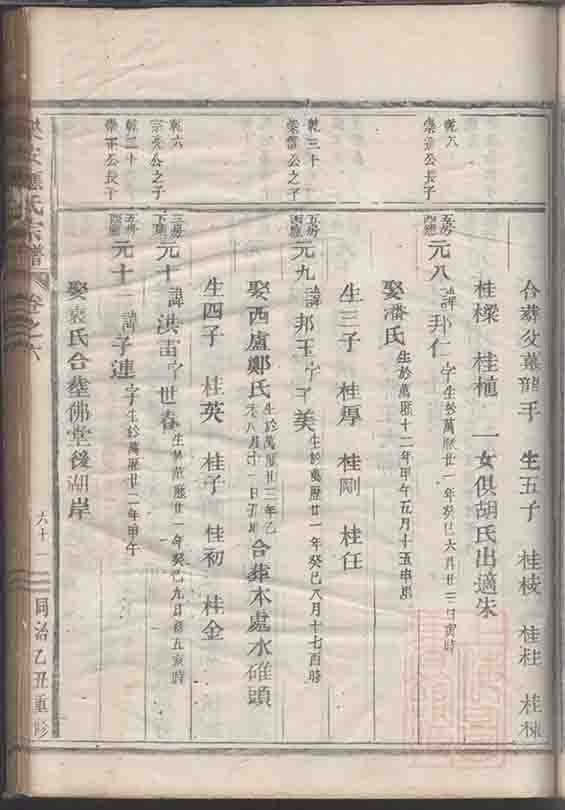 合葬父墓龍手 生五子 桂枝 桂柱 桂棟
桂樑 桂植 一女俱胡氏出適朱
乾八
崇富公長子
五房
元八 諱邦仁 字生於萬歷廿一年癸巳六月廿三日寅時
娶潘氏 生於萬歷十二年甲午五月十五申時
生三子 桂厚 桂剛 桂任
乾三十
崇富公之子
五房
元九 諱邦玉 字子美 生於萬歷廿一年癸巳八月十七酉時
娶西盧鄭氏 生於萬歷廿三年乙未八月十一日 合葬本處水碓頭
生四子 桂英 桂子 桂初 桂金
乾六
宗 公之子
三房
下應
元十 諱洪 字世春 生於萬歷廿一年癸巳九月初五亥時
乾二十
崇 公長子
五房
元十一 諱子連 字 生於萬歷廿二年甲午
娶 氏合塟佛堂後湖岸
應氏宗譜 卷之六
六十一
同治乙丑重修